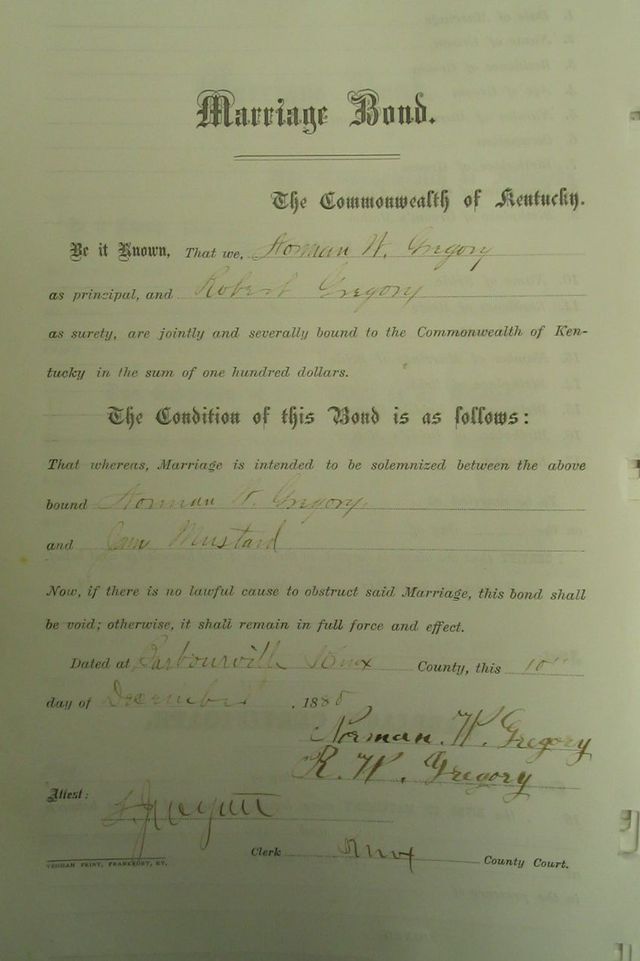 Marriage Bond.
The Commonwealth of Kentucky.
Be it Known, That we, Norman W. Gregory
as principal, and Robert Gregory
as surety, are jointly and severally bound to the Commonwealth of Ken-
tucky in the sum of one hundred dollars.
The Condition of this Bond is as follows:
That whereas, Marriage is intended to be solemnized between the above
bound Norman W. Gregory
and Jane Mustard
Now, if there is no lawful cause to obstruct said Marriage, this bond shall
be void; otherwise, it shall remain in full force and effect.
Dated at Barbourville Knox County, this 10"
day of December, 1888
Norman. W. Gregory
R. W. Gregory
Attest:
Clerk Knox County Court.
YEOMAN PRINT, FRANKFORT, KY.